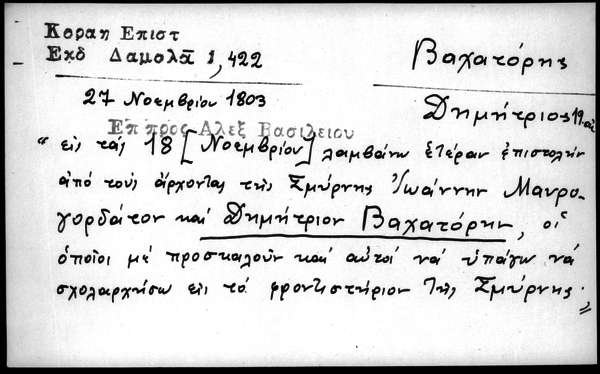 Κοραη Επιστ
Εκδ Δαμαλᾶ 1,422
Βαχατόρης
27 Νοεμβρίου 1803
Δημήτριος 19. αἰ
Επ προς Αλεξ Βασιλειου
"εἰς τάς 18 [Νοεμβρίου] λαμβάνω ἑτέραν ἐπιστολήν
ἀπό τούς ἄρχοντας τῆς Σμύρνης Ἰωάννην Μαυρο-
γορδάτον καί Δημήτριον Βαχατόρην, οἱ
ὁποῖοι μέ προσκαλοῦν καί αὐτοί νά ὑπάγω νά
σχολαρχήσω εἰς τό φροντιστήριον τῆς Σμύρνης."